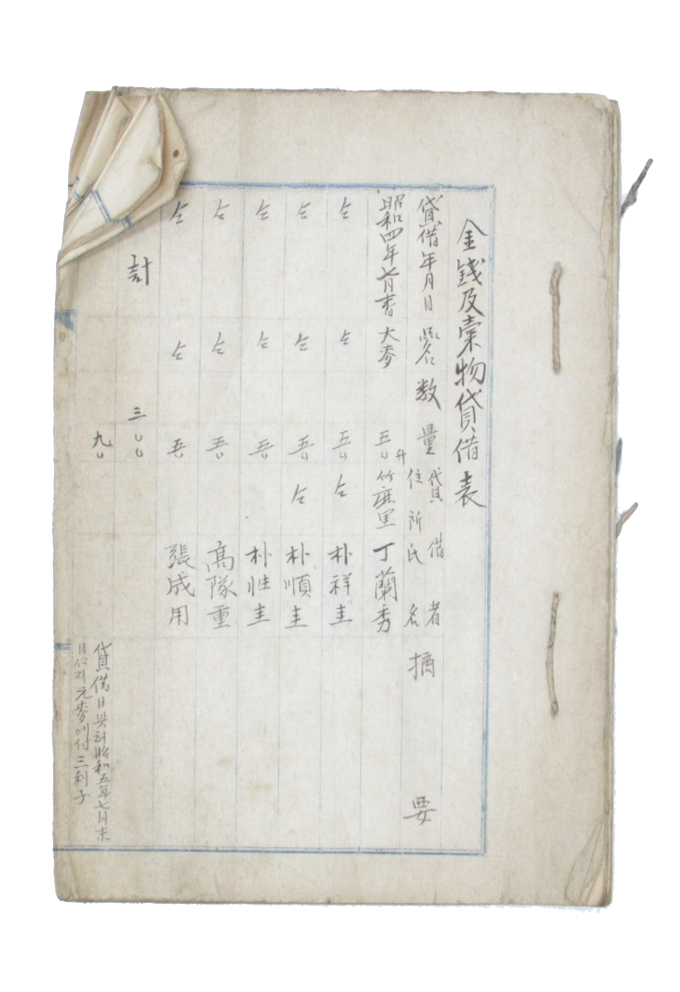 金錢及稟物貸借表
貸借年月日 品名 数量 貸借者 住所 氏名 摘要
昭和四年七月 大麥 五〇升 竹麻里 丁蘭秀
仝 仝 五〇 仝 朴祥圭
仝 仝 五〇 仝 朴順圭
仝 仝 五〇 朴性圭
仝 仝 五〇 高隊重
仝 仝 五〇 張成用
計 三〇〇
九〇 貸借日부터昭和五年七月末
日까지元麥에付三利子